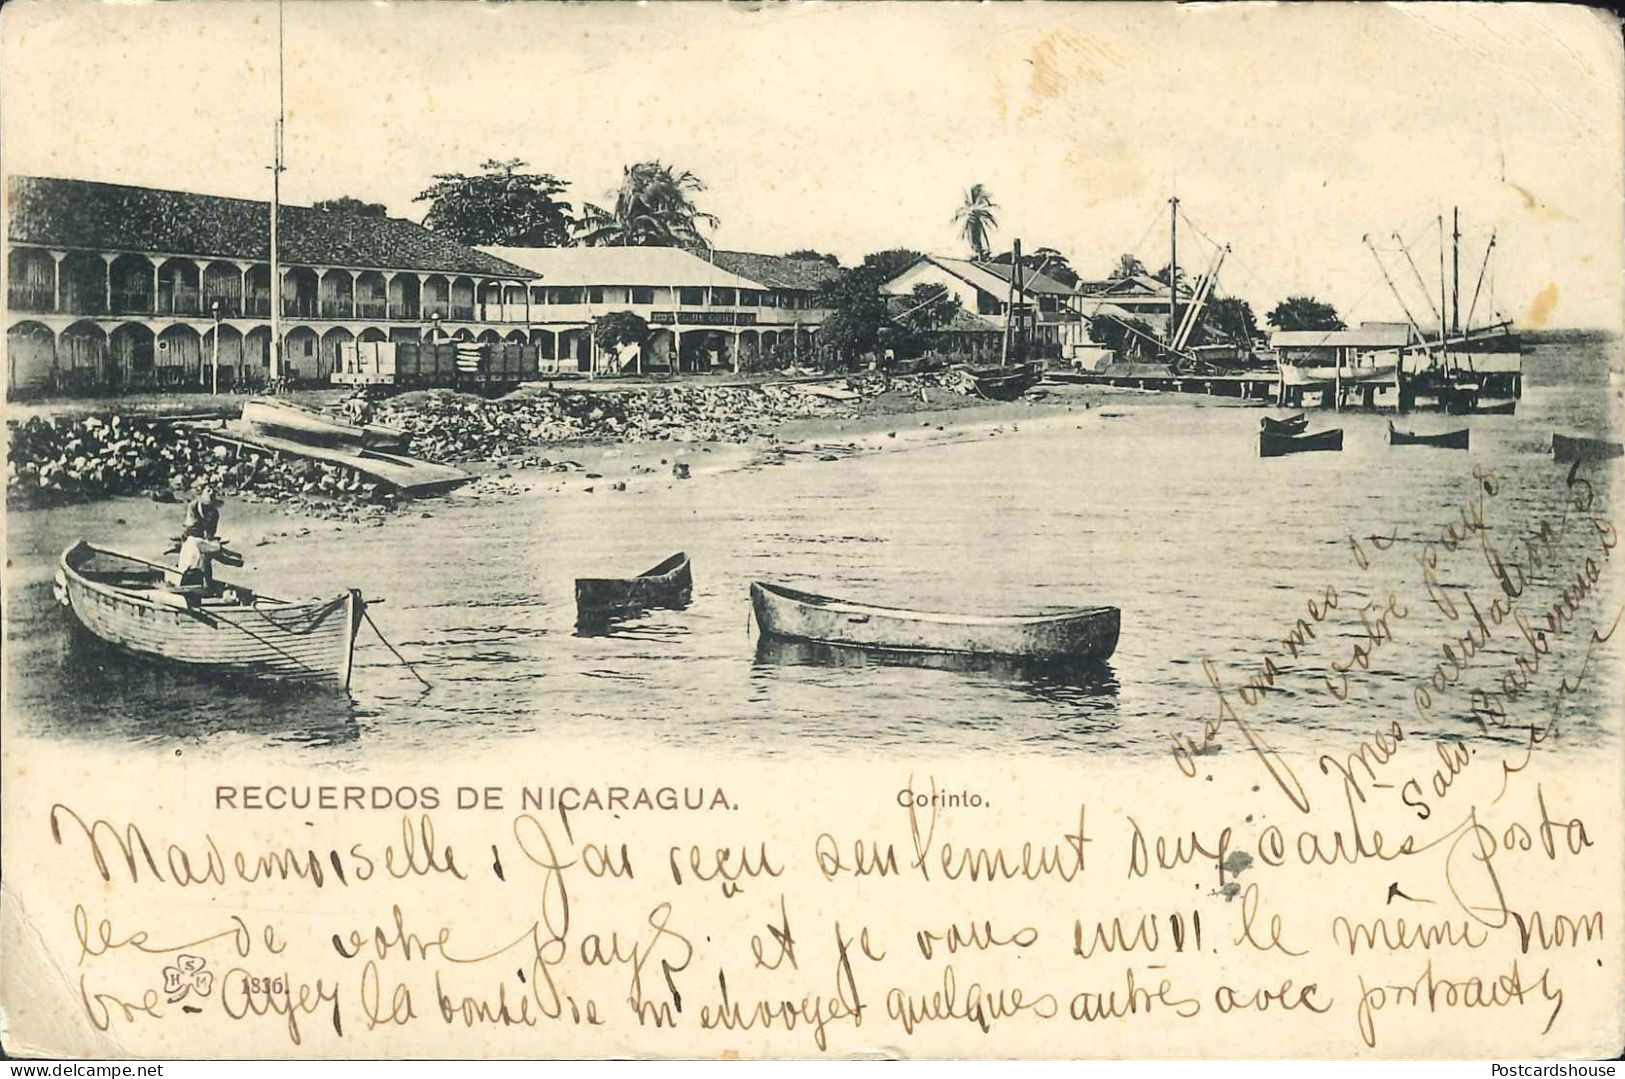 RECUERDOS DE NICARAGUA.
Corinto.
Mademoiselle : J'ai reçu seulement deux cartes posta
les de votre pays. et je vous envoi. le même nom
bre - Ayez la bonté de m'envoyer quelques autrés avec portraits
des femmes de
votre pays
Mes salutations
Salv. Barberena
H S M
1836.
Postcardshouse